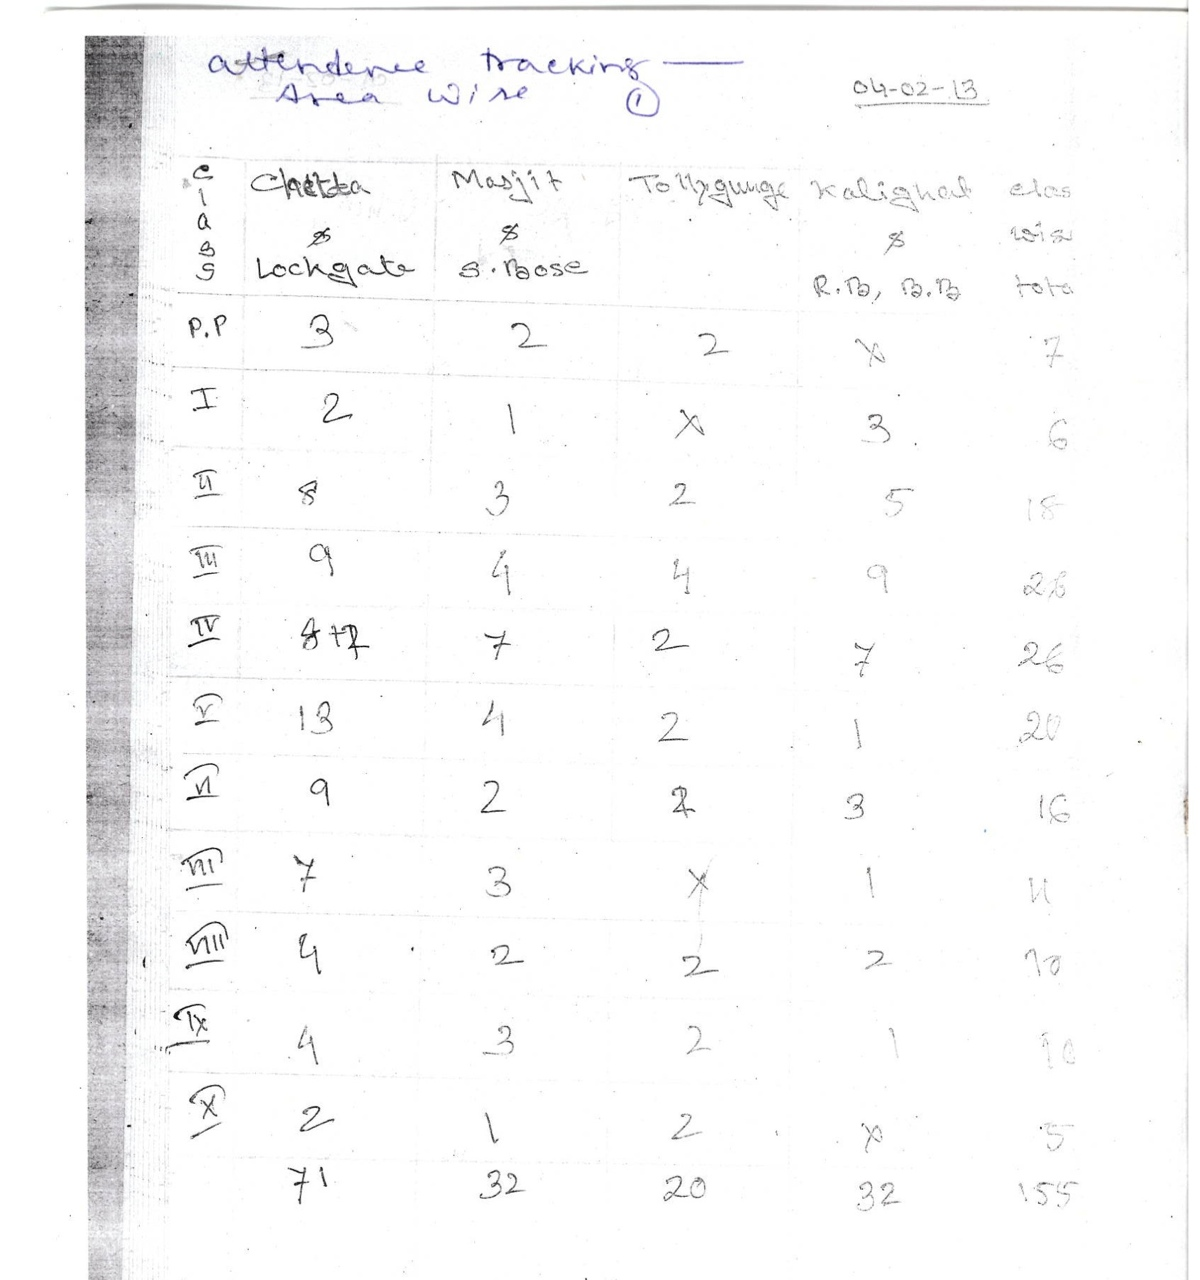 attendence tracking —
Area Wise ①
04-02-13
Class Chetla Masjit Tollygunge Kalighat clas
& & & wis
Lockgate S.Bose R.B, B.B tota
P.P 3 2 2 x 7
I 2 1 x 3 6
II 8 3 2 5 18
III 9 4 4 9 26
IV 7 2 7 26
V 13 4 2 1 20
VI 9 2 2 3 16
VII 7 3 x 1 11
VIII 4 2 2 2 10
IX 4 3 2 1 10
X 2 1 2 x 5
71 32 20 32 155